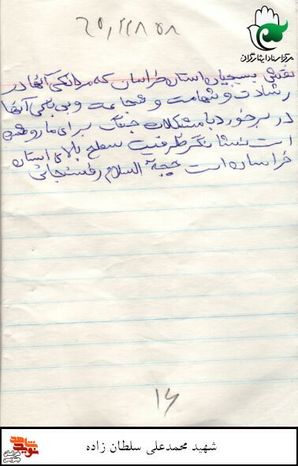 مرکز اسناد ایثارگران
نقش بسیجیان استان خراسان که مردانگی آنها در
رشادت و شهامت و شجاعت و بی باکی آنها
در برخورد با مشکلات جنگ برای ما روشن
است نشانگر ظرفیت سطح بالای استان
خراسان است حجة السلام رفسنجانی
۱۶
شهید محمدعلی سلطان زاده